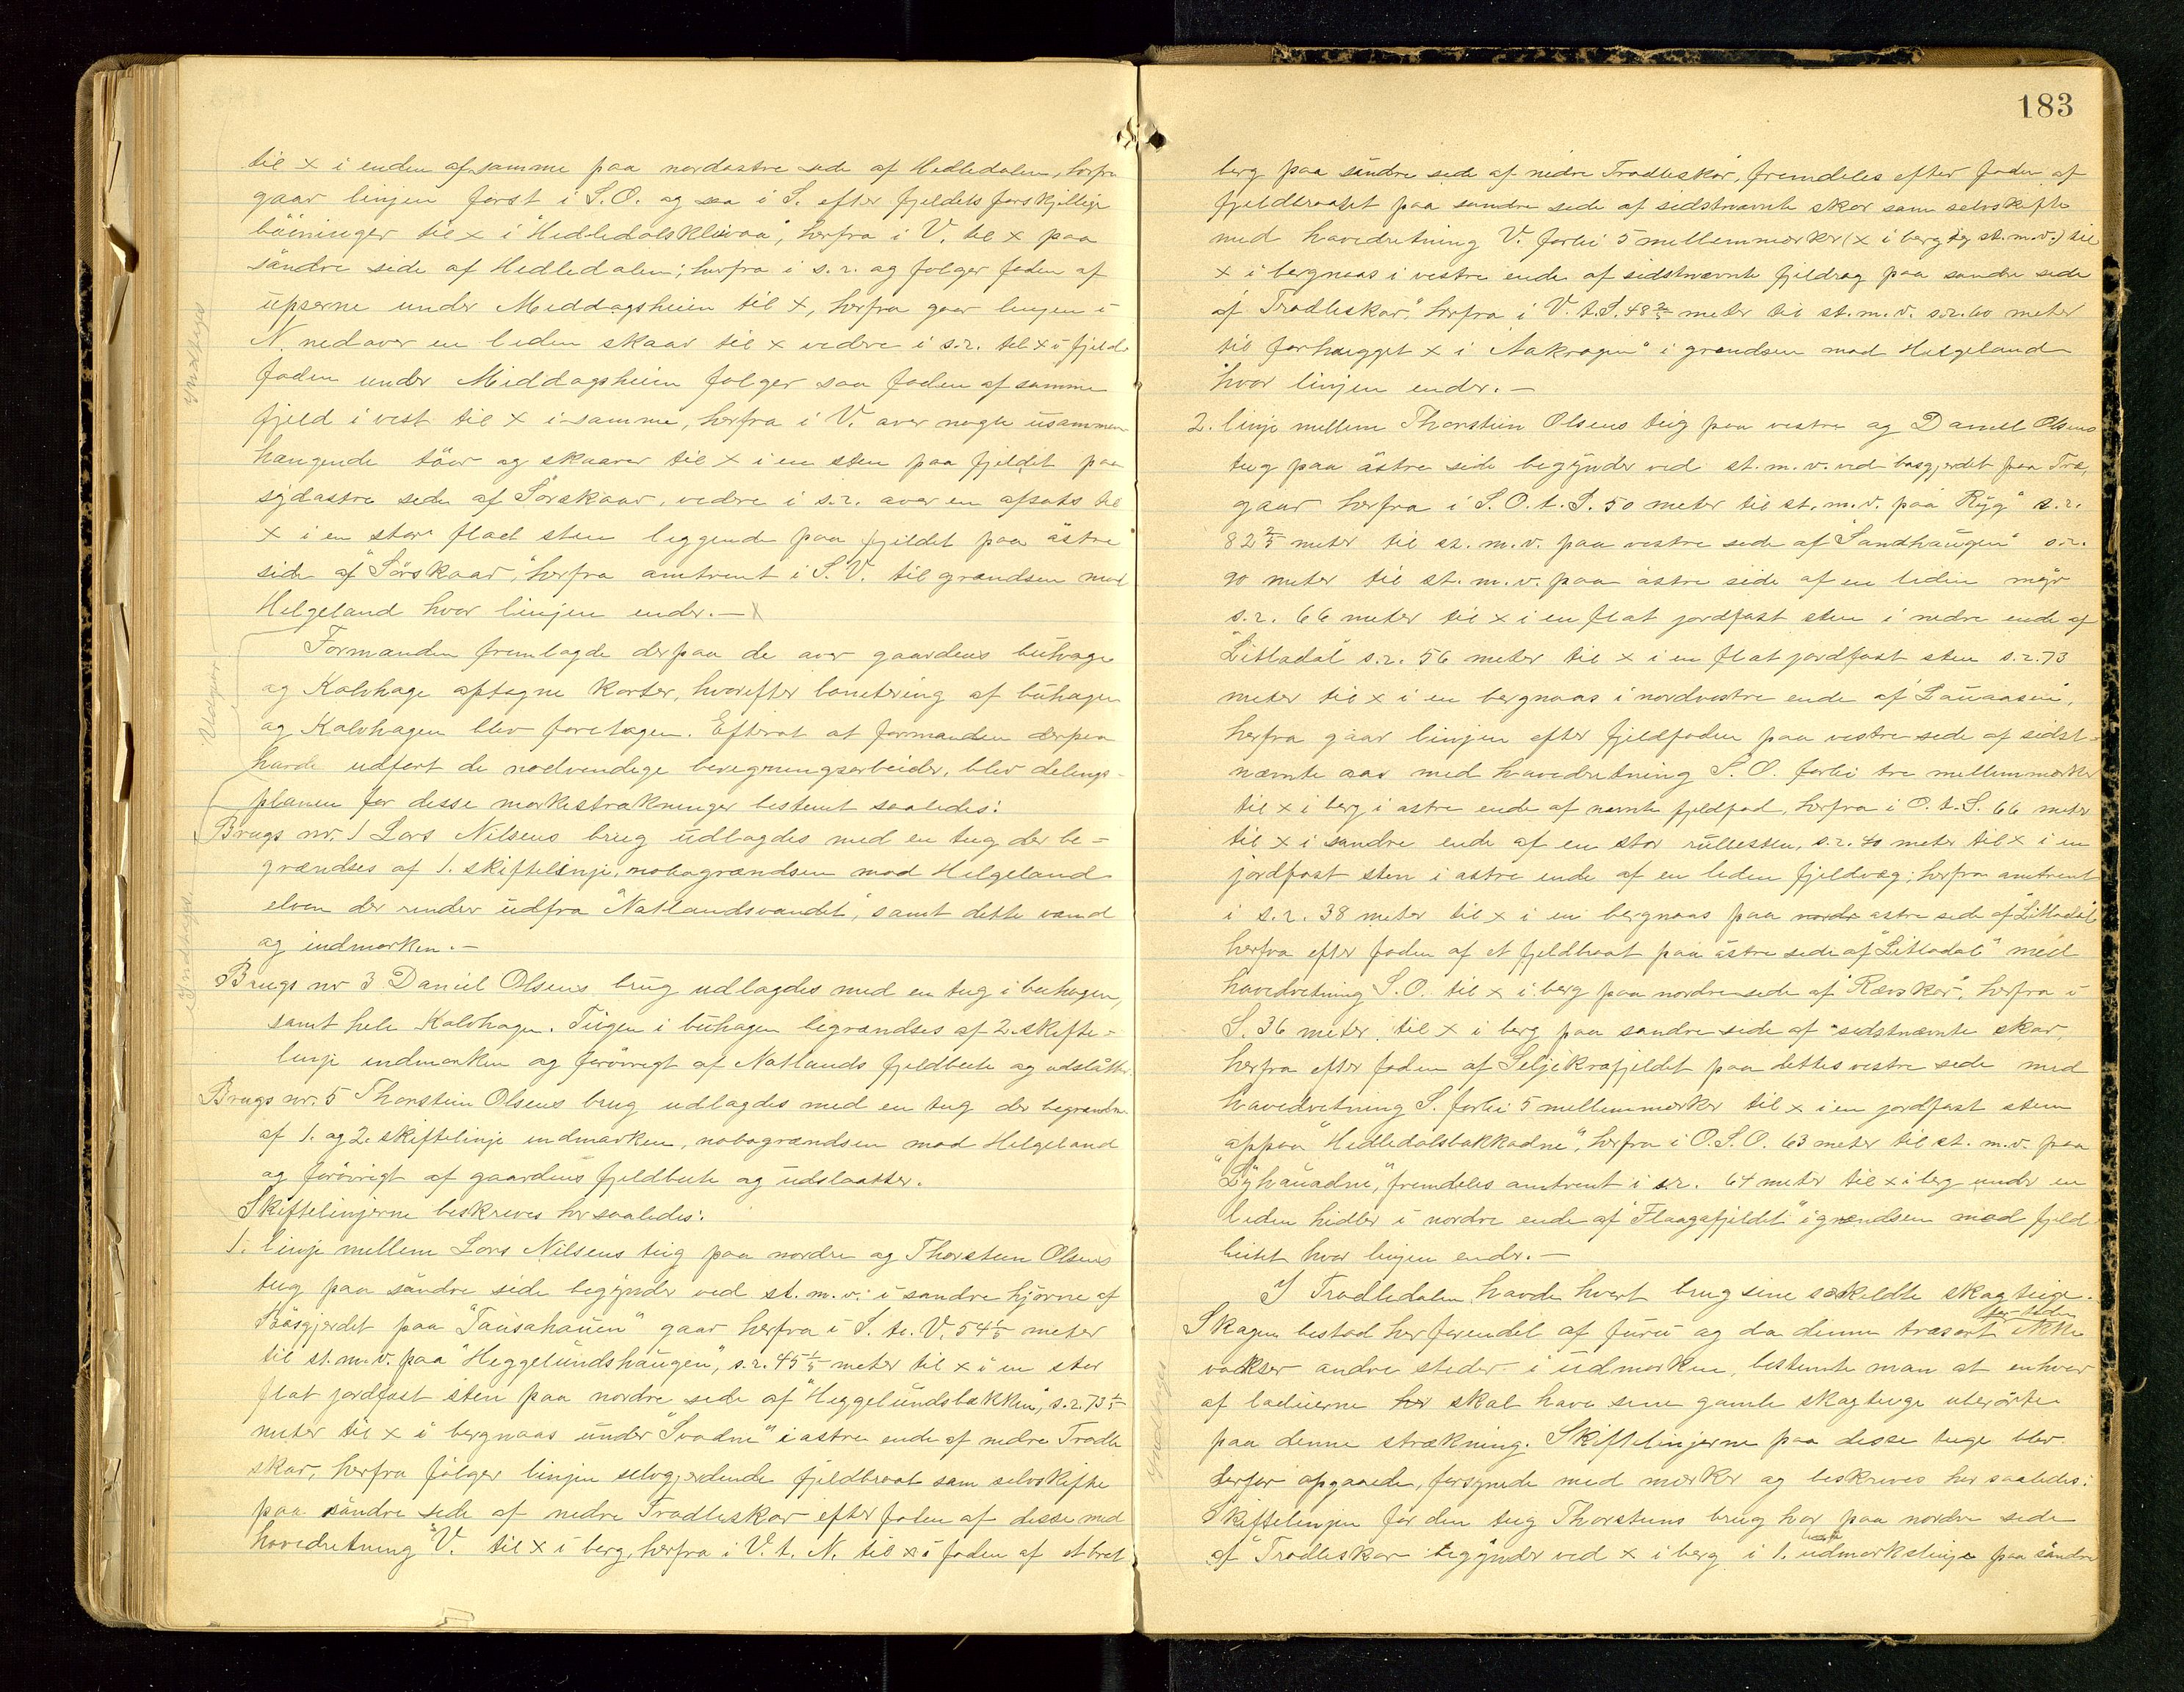 til x i enden af samme paa nordøstre side af Hedledalen, herfra
gaar linjen først i S.O. og saa i S. efter fjeldets forskjellige
böininger til x i "Hedledalsklivaa", herfra i V. til x paa
söndre side af Hedledalen; herfra i s.r. og følger foden af
üpserne under Middagsheien til x, herfra gaar linjen i
N. nedover en liden skaar til x videre i s.r. til x i fjeld-
foden under Middagsheien følger saa foden af samme
fjeld i vest til x i samme, herfra i V. over nogle üsammen-
hængende töer og skaarer til x i en sten paa fjeldet paa
sydøstre side af Sörskaar, videre i s.r. over en afsats til
x i en stor flad sten liggende paa fjeldet paa östre
side af "Sörskaar", herfra omtrent i S.V. til grændsen mod
Helgeland hvor linjen ender.—
Formanden fremlagde derpaa de over gaardens buhage
og Kalvhage optagne karter, hvorefter bonitering af buhagen
og Kalvhagen blev foretagen. Efterat at formanden derpaa
havde udført de nødvendige beregningsarbeider, blev delings-
planen for disse markestrækninger bestemt saaledes:
Brugs nr. 1 Lars Nilsens brug üdlagdes med en teig der be-
grændses af 1. skiftelinje, nabogrændsen mod Helgeland
elven der render üdfra "Natlandsvandet", samt dette vand
og indmarken.—
Brugs nr 3 Daniel Olsens brüg udlagdes med en teig i buhagen,
samt hele Kalvhagen. Teigen i buhagen begrændses af 2. skifte-
linje indmarken og forövrigt af Natlands fjeldbeite og udslåtter.
Brugs nr. 5 Thorstein Olsens brug udlagdes med en teig der begrændses
af 1. og 2. skiftelinje indmarken, nabogrændsen mod Helgeland
og forövrigt af gaardens fjeldbeite og üdslaatter.
Skiftelinjerne beskrives her saaledes:
1. linje mellem Lars Nilsens teig paa nordre og Thorstein Olsens
teig paa söndre side begynder ved st. m. v. i søndre hjörne af
Bösgjerdet paa "Taüsahaüen" gaar herfra i S. t. V. 54 1/5 meter
til st. m. v. paa "Heggelündshaügen", s.r. 45 1/5 meter til x i en stor
flat jordfast sten paa nordre side af "Heggelündsbækken", s.r. 73 1/5
meter til x i bergnaas ünder "Svadne" i østre ende af nedre Tradle
skar, herfra fölger linjen selvgjerdende fjeldbraat som selvskifte
paa söndre side af nedre Tradleskar efter foden af disse med
hovedretning V. til x i berg, herfra i V. t. N. til x i foden af et brat
183
berg paa söndre side af nedre Tradleskar, fremdeles efter foden af
fjeldbraatet paa søndre side af sidstnævnte skar som selvskifte
med hovedretning V. forbi 5 mellemmærker (x i berg og st. m. v.) til
x i bergnaas i vestre ende af sidstnævnte fjeldrag paa søndre side
af "Tradleskar", herfra i V. t. S. 48 2/5 meter til st. m. v. s.r. 60 meter
til forhugget x i "Aakragen" i grændsen mod Helgeland
hvor linjen ender.—
2. linje mellem Thorstein Olsens teig paa vestre og Daniel Olsens
teig paa östre side begynder ved st. m. v. ved bøsgjerdet paa Træ,
gaar herfra i S.O. t. S. 50 meter til st. m. v. paa "Ryg" s.r.
82 2/5 meter til st. m. v. paa vestre side af "Sandhaügen" s.r.
90 meter til st. m. v. paa østre side af en liden myr
s.r. 66 meter til x i en flat jordfast sten i nedre ende af
"Litladal" s.r. 56 meter til x i en flat jordfast sten s.r. 73
meter til x i en bergnaas i nordvestre ende af "Laüaasen",
herfra gaar linjen efter fjeldfoden paa vestre side af sidst-
nævnte aas med hovedretning S.O. forbi tre mellemmærker
til x i berg i østre ende af nævnte fjeldfod, herfra i O. t. S. 66 meter
til x i søndre ende af en stor rüllesten, s.r. 40 meter til x i en
jordfast sten i østre ende af en liden fjeldvæg; herfra omtrent
i s.r. 38 meter til x i en bergnaas paa nordr østre side af "Litladal"
herfra efter foden af et fjeldbraat paa östre side af "Litladal" med
hovedretning S.O. til x i berg paa nordre side af "Rævskar", herfra i
S. 36 meter til x i berg paa søndre side af sidstnævnte skar,
herfra efter foden af Seljekrafjeldet paa dettes vestre side med
hovedretning S. forbi 5 mellemmærker til x i en jordfast sten
oppaa "Hedledalsbakkadne", herfra i O.S.O. 63 meter til st. m. v. paa
"Lyhaüadne", fremdeles omtrent i s.r. 64 meter til x i berg under en
liden hidler i nordre ende af "Flaagafjeldet" i grændsen mod fjeld-
beitet hvor linjen ender.—
I Tradledalen havde hvert brug sine særskildte skogteige.
Skogen bestod her forendel af furü og da denne træsort for tiden ikke
vokser andre steder i üdmarken, bestemte man at enhver
af lodeierne her skal have sine gamle skogteige uberörte
paa denne strækning. Skiftelinjerne paa disse teige blev
derfor opgaaede, forsynede med mærker og beskrives her saaledes:
Skiftelinjen for den teig Thorsteins brug har paa nordre side
af "Tradleskar" begynder ved x i berg i 1. udmarkslinje paa söndre